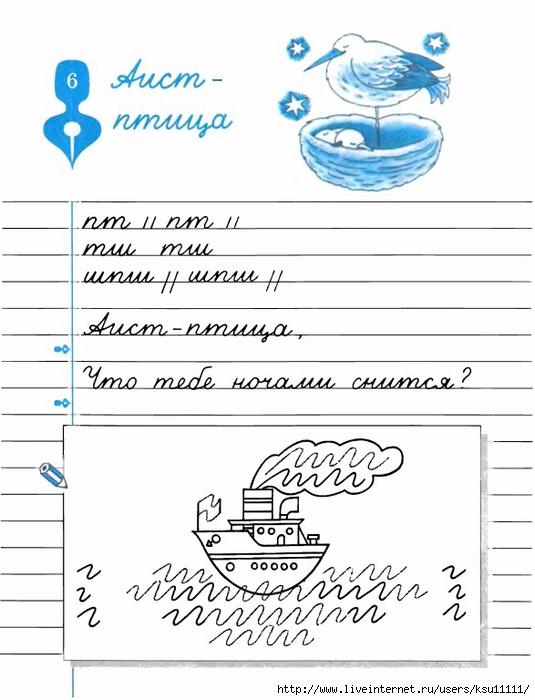 6
Аист-
птица
пт ıı пт ıı
тш тш
шпш || шпш ||
Аист-птица,
Что тебе ночами снится?
http://www.liveinternet.ru/users/ksu11111/